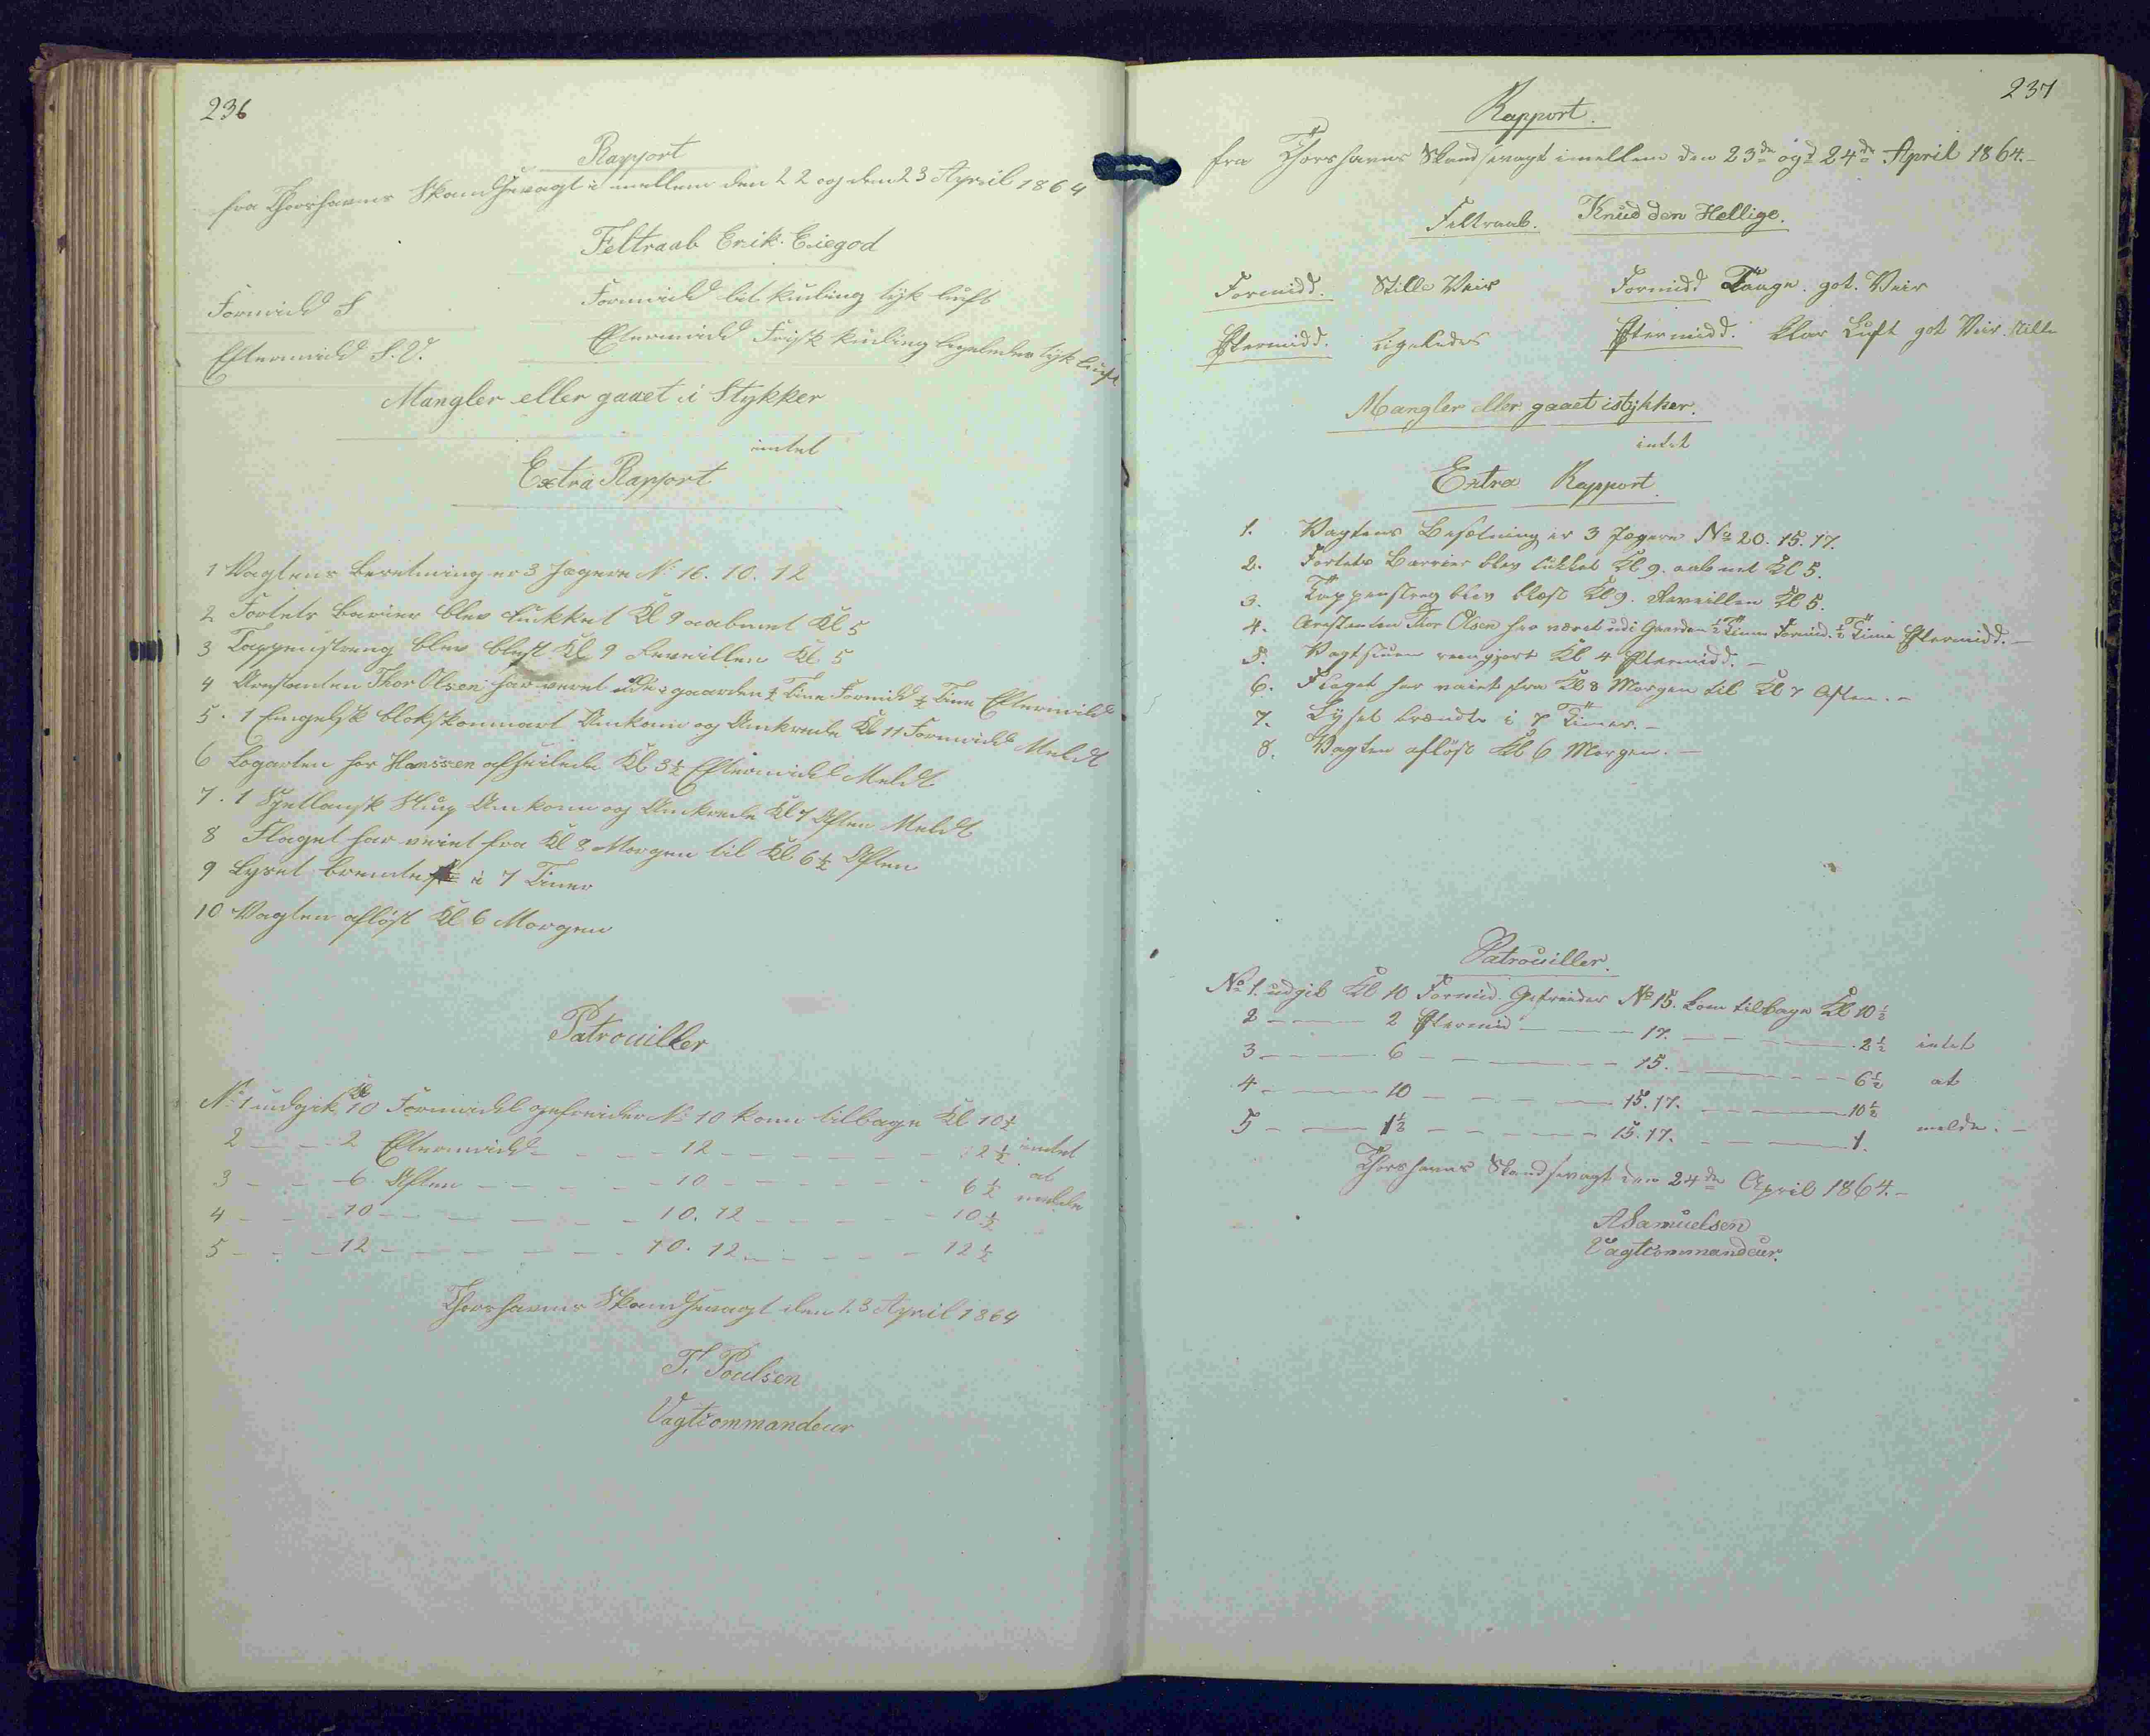 236
Rapport
fra Thorshavns Skandsevagt i mellem den 22 og den 23 April 1864
Feltraab Erik Eiegod
Formidd S Formidd lit kuling tyk luft
Eftermidd S.V. Eftermidd Frisk kuling ligeledes tyk luft
Mangler eller gaaet i Stykker
intet
Extra Rapport
1 Vagtens Beretning er 3 Jægere No 16. 10. 12
2 Fortets barier blev lukket Kl 9 aabnet Kl 5
3 Tappenstreng blev blæst Kl 9 Reveillen Kl 5
4 Arestanten Thor Olsen har veret ude i gaarden ½ Time Formidd ½ Time Eftermidd
5. 1 Engelsk blokskonnart Ankom og Ankrede Kl 11 Formidd Meldt
6 Hanssen afseilede Kl 3½ Eftermidd Meldt
7. 1 Sjetlansk Slup Ankom og Ankrede Kl 7 Aften Meldt
8 Flaget har veiet fra Kl 8 Morgen til Kl 6½ Aften
9 Lyset brendte i 7 Timer
10 Vagten afløst Kl 6 Morgen
Patrouiller
No 1 udgik Kl 10 Formidd gefreider No 10 kom tilbage Kl 10½
2 — — 2 Eftermidd — — 12 — — — — 2½ intet
3 — — 6 Aften — — — 10 — — — — 6½ at melde
4 — — 10 — — — — 10. 12 — — — — 10½
5 — — 12 — — — — 10. 12 — — — — 12½
Thorshavns Skandsevagt den 23 April 1864
T. Poulsen
Vagtcommandeur
237
Rapport.
fra Thorshavns Skandsevagt imellem den 23de og 24de April 1864.
Feltraab. Knud den Hellige.
Formidd. Stille Veir Formidd Taage. got. Veir
Eftermidd. Ligeledes Eftermidd. Klar Luft got Veir. Stille
Mangler eller gaaet istykker.
intet
Extra Rapport.
1. Vagtens Besætning er 3 Jægere No 20. 15. 17.
2. Fortets Barrier blev lukket Kl 9. aabnet Kl 5.
3. Tappenstreg blev blæst Kl 9. Reveillen Kl 5.
4. Arestanten Thor Olsen har været udi Gaarden ½ Time Formid. ½ Time Eftermidd. —
5. Vagtstuen rengjort Kl 4 Eftermidd. —
6. Flaget har vaiet fra Kl 8 Morgen til Kl 7 Aften. —
7. Lyset brændte i 7 Timer. —
8. Vagten afløst Kl 6 Morgen. —
Patrouiller.
No 1. udgik Kl 10 Formid. Gefreider No 15. kom tilbage Kl 10½
2 — — 2 Eftermid — — 17. — — — 2½ intet
3 — — 6 — — — 15. — — — 6½ at
4 — — 10 — — — 15. 17. — — — 10½
5 — — 1½ — — — 15. 17. — — — 1. melde. —
Thorshavns Skandsevagt den 24de April 1864. —
A Samuelsen
Vagtcommandeur.